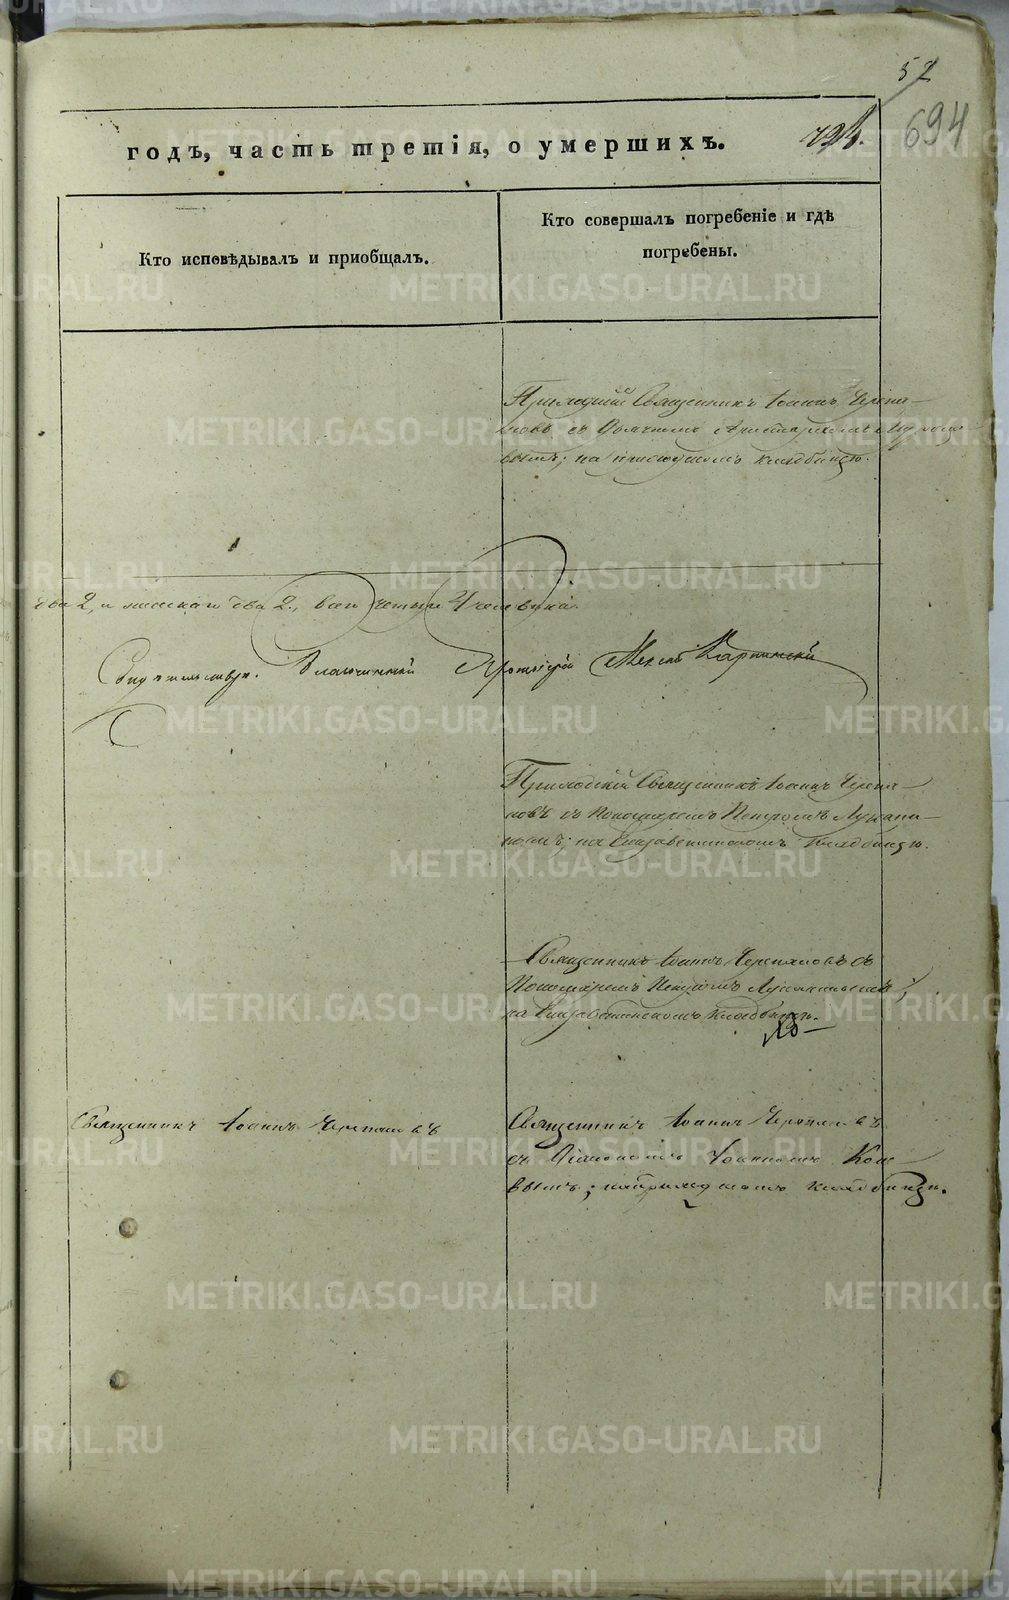 52
694
годъ, часть третія, о умершихъ.
Кто исповѣдывалъ и приобщалъ.
Кто совершалъ погребеніе и гдѣ
погребены.
Приходскій Священникъ Іоаннъ Черепа-
новъ съ
на приходскомъ кладбищѣ.
два 2, и женскаго два 2, всего четыре 4 человѣка.
Благочинный Протоіерей Карпинскій
Приходскій Священникъ Іоаннъ Черепа-
новъ съ Пономаремъ Петромъ Лукани-
нымъ; на Елизаветинскомъ кладбищѣ.
Священникъ Іоаннъ Черепановъ съ
Пономаремъ Петромъ Луканинымъ;
на Елизаветинскомъ кладбищѣ.
Священникъ Іоаннъ Черепановъ
Священникъ Іоаннъ Черепановъ
съ Діакономъ Іоанномъ
на приходскомъ кладбищѣ.
METRIKI.GASO-URAL.RU